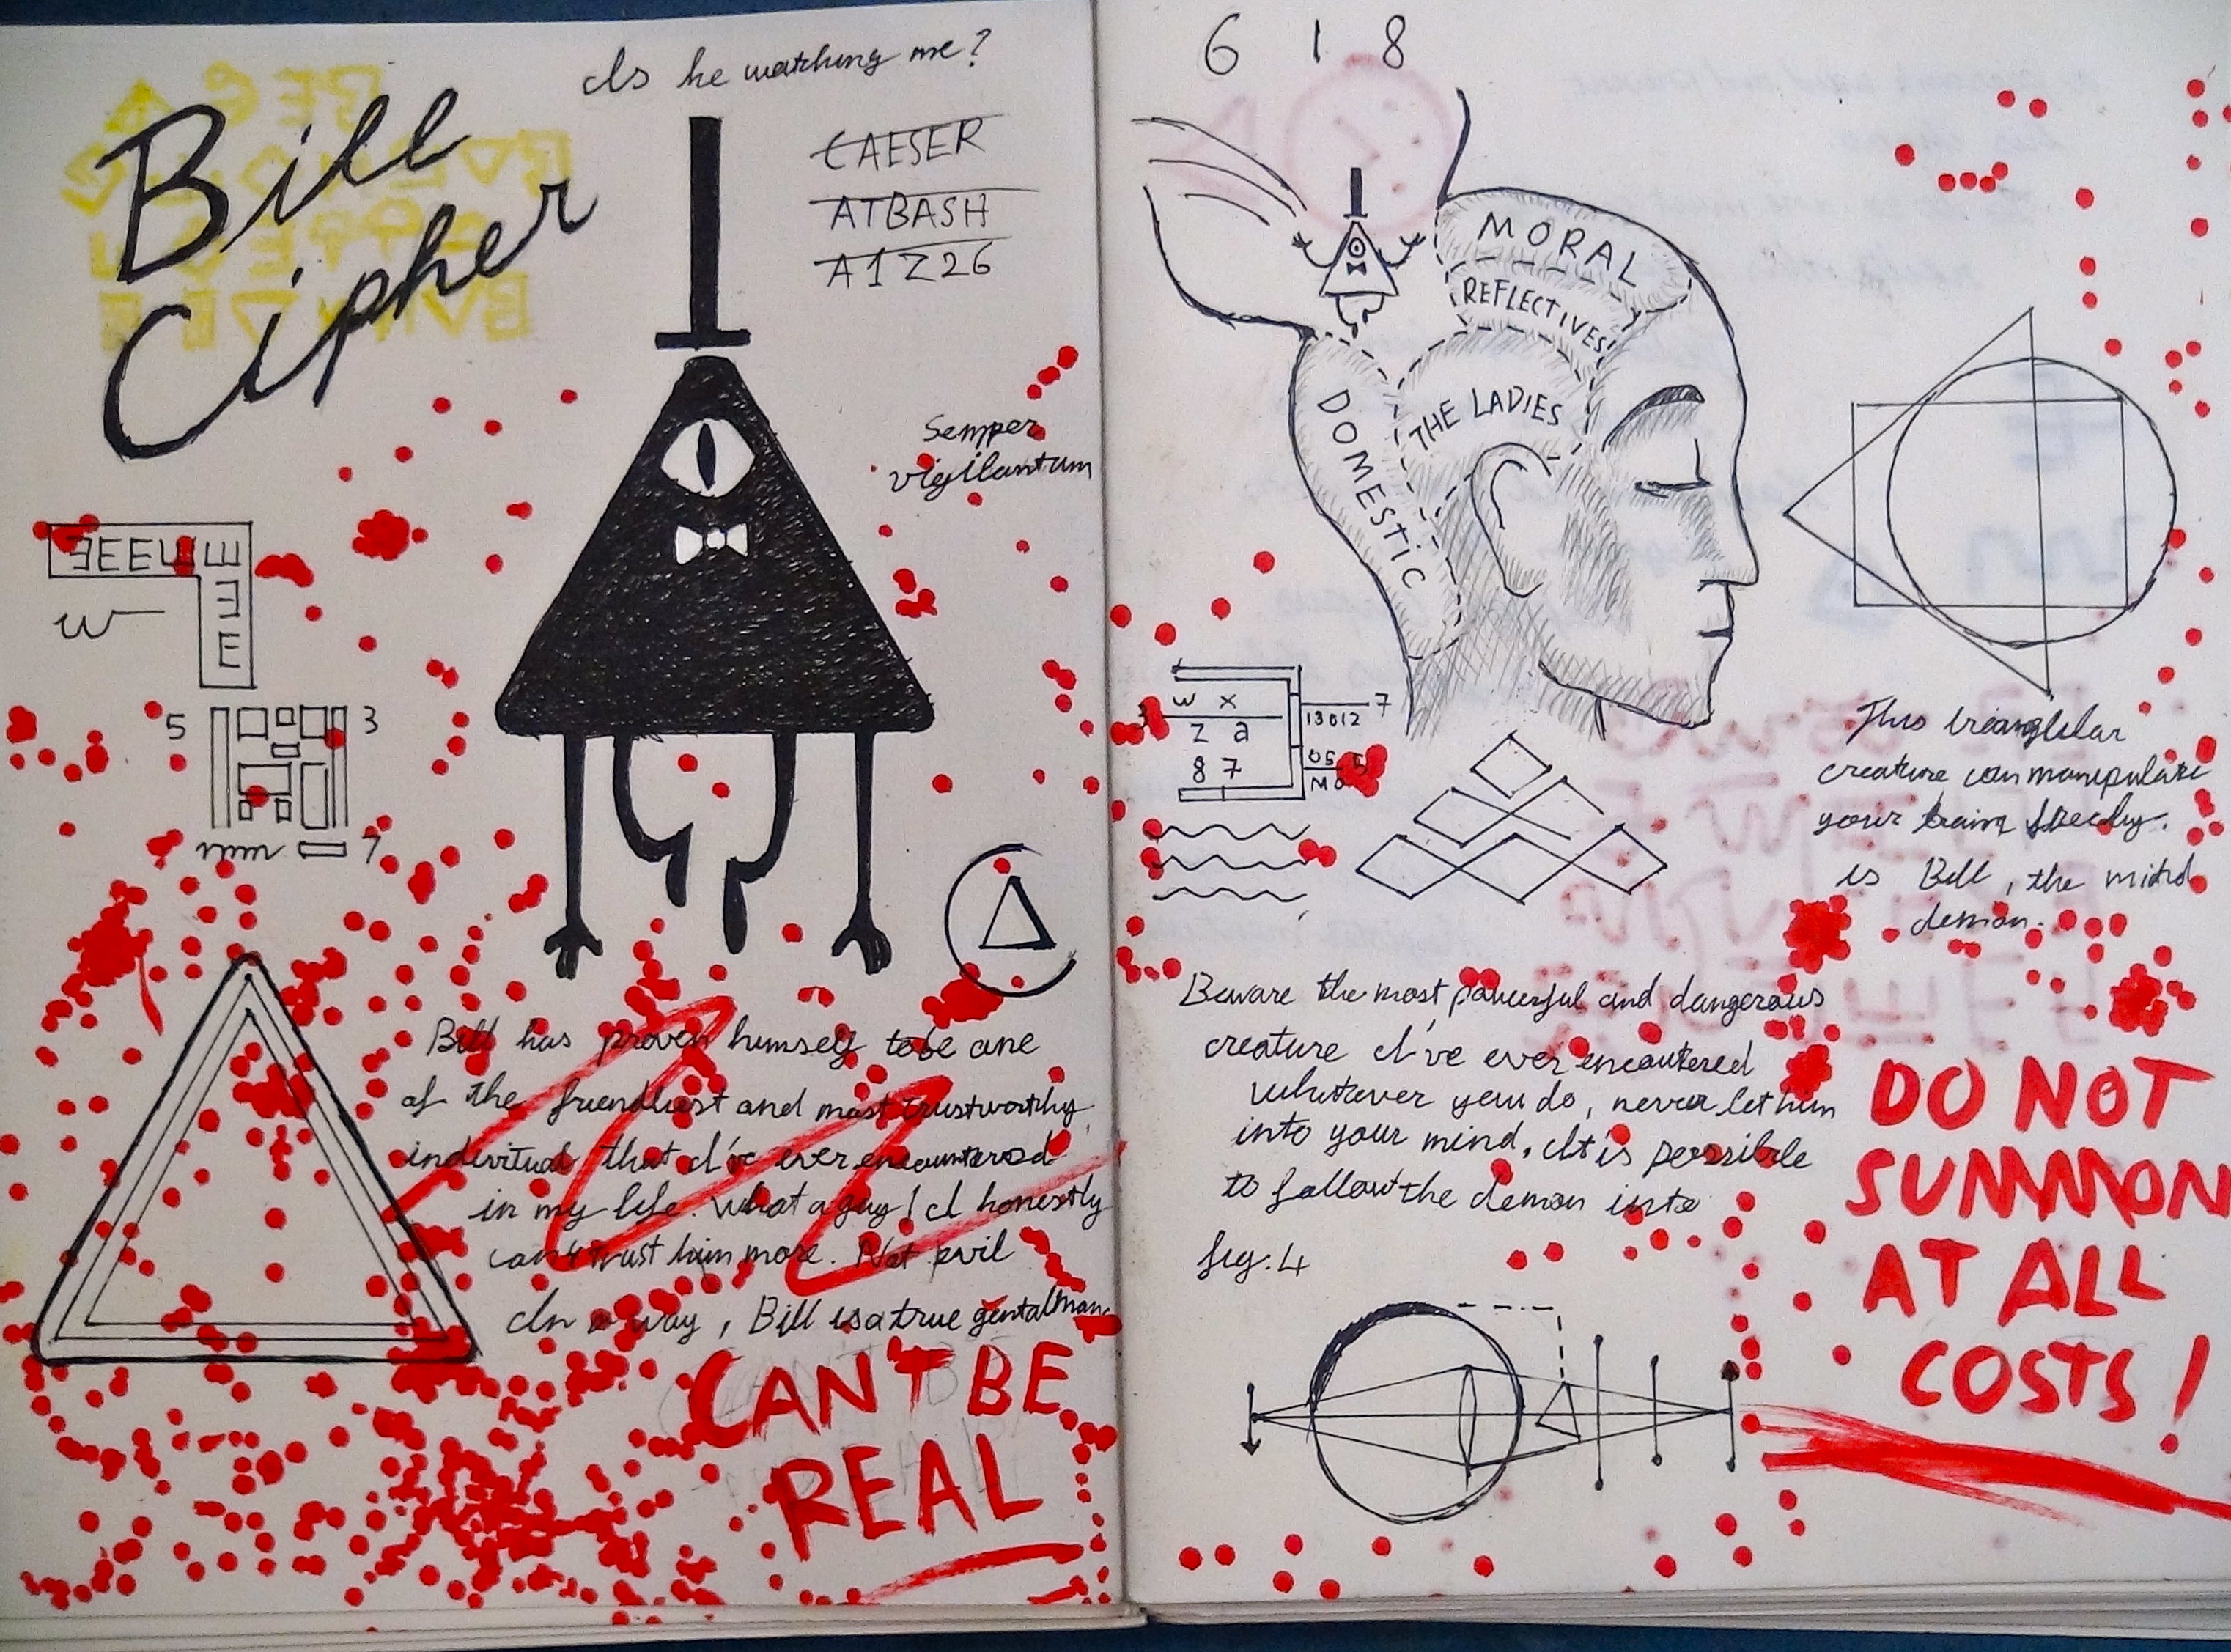 Bill
Cipher
Is he watching me?
CAESER
ATBASH
A1Z26
Semper
vigilantum
5 3
7
Bill has proven himself to be one
of the friendliest and most trustworthy
individual that I've ever encountered
in my life. What a guy! I honestly
can't trust him more. Not evil
In a way, Bill is a true gentalman
CAN'T BE
REAL
6 1 8
MORAL
REFLECTIVES
THE LADIES
DOMESTIC
w x
z a
8 7
13012 7
05 5
Mo
This trianglular
creature can manipulate
your brain freely.
is Bill, the mind
demon.
Beware the most powerful and dangerous
creature I've ever encoutered
whatever you do, never let him
into your mind. It is possible
to follow the demon into
fig: 4
DO NOT
SUMMON
AT ALL
COSTS!